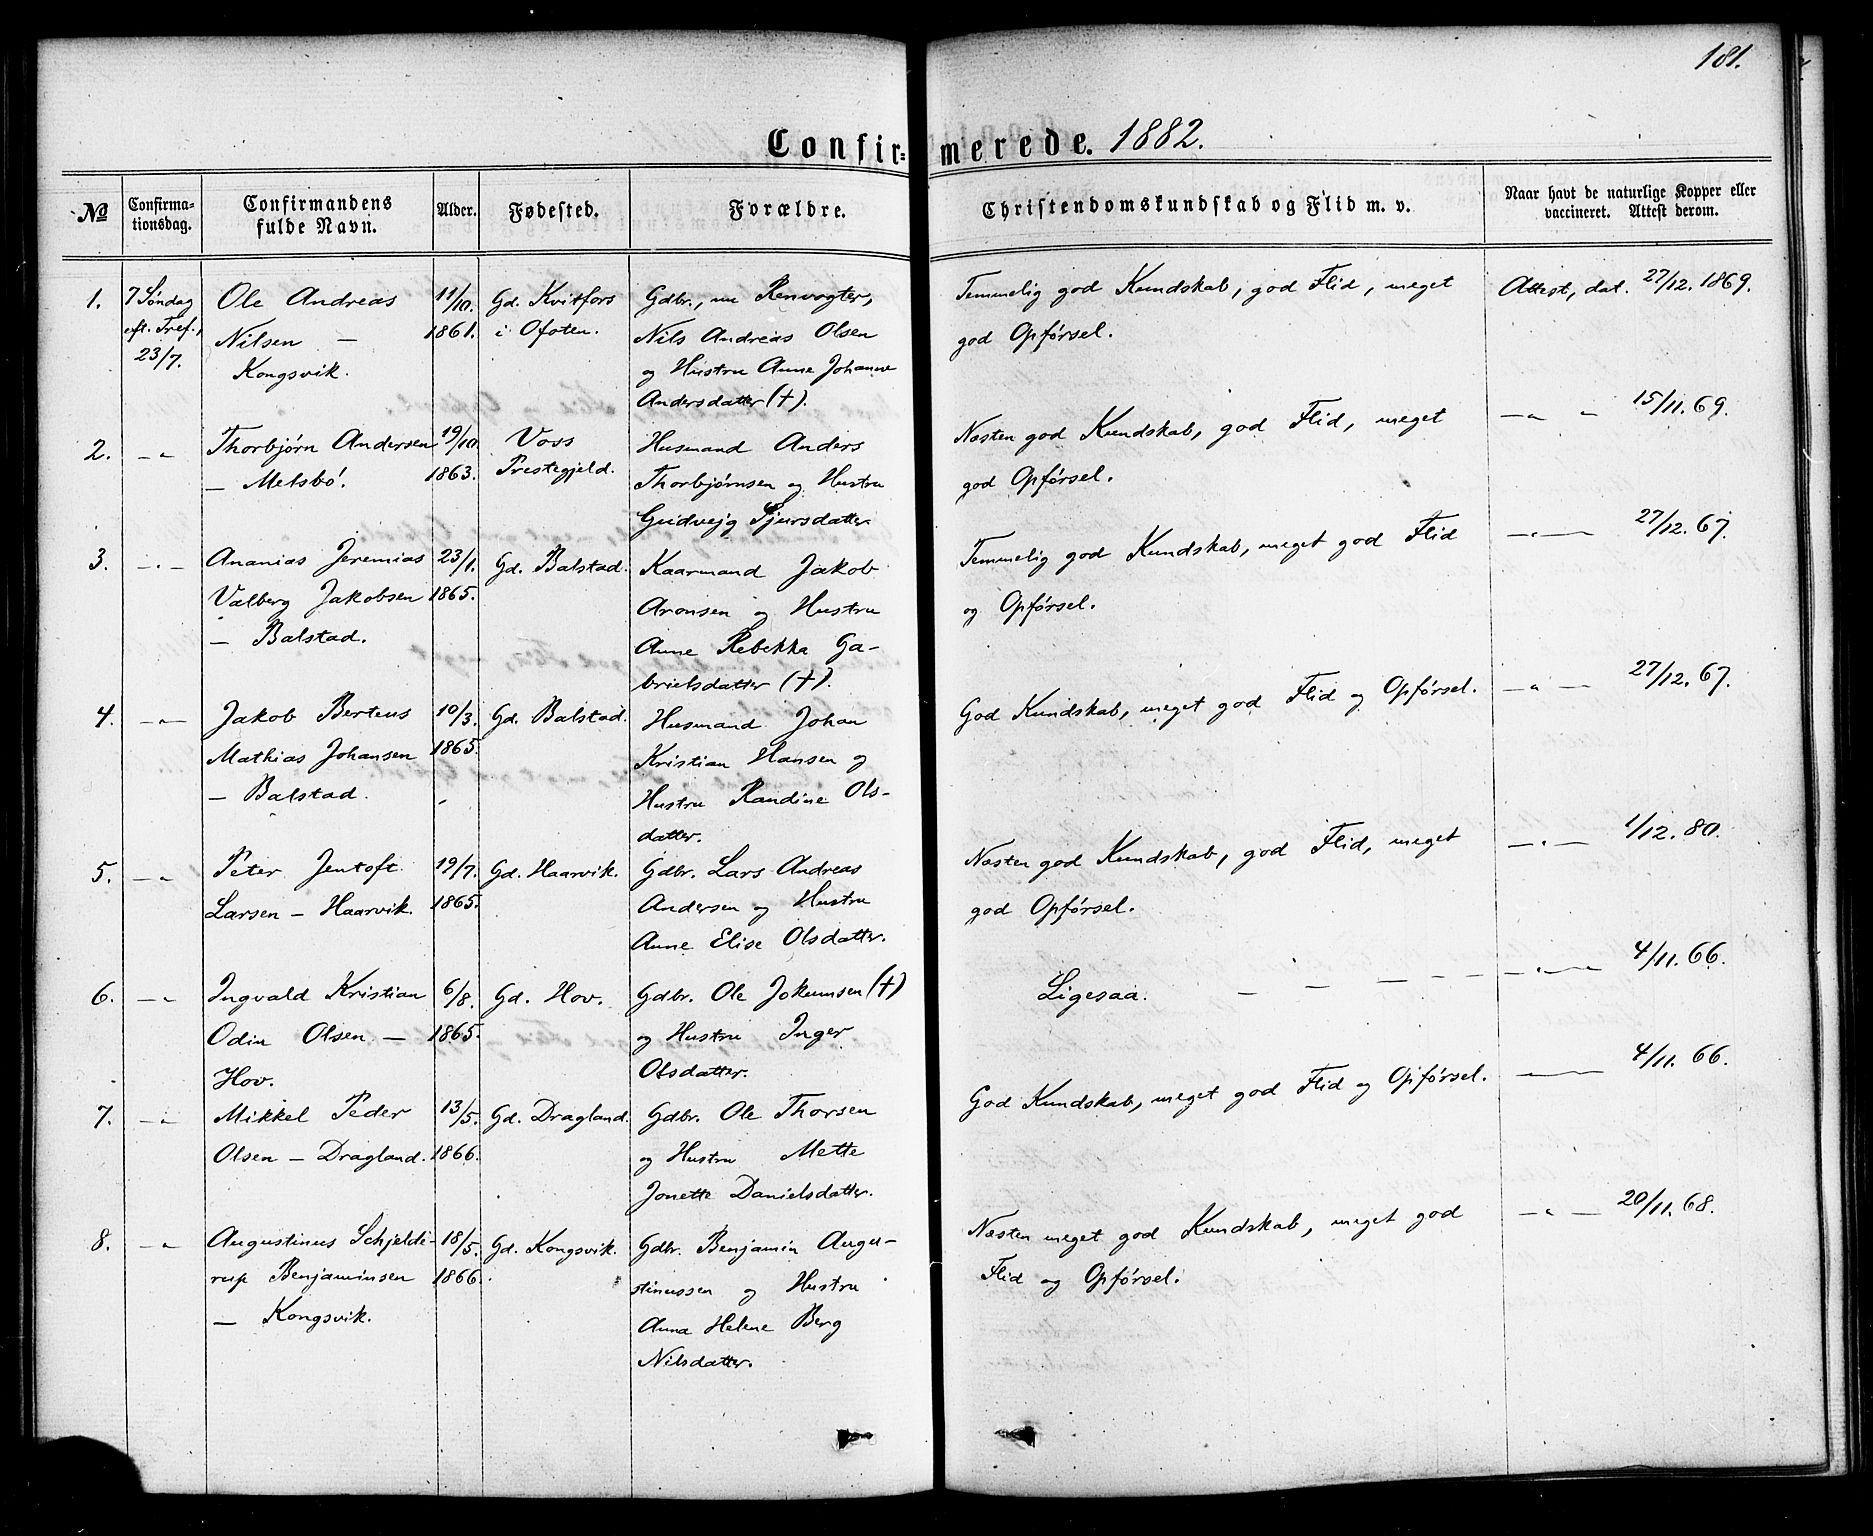 181.
Confirmerede. 1882.
No
Confirmationsdag.
Confirmandens fulde Navn.
Alder.
Fødested.
Forældre.
Christendomskundskab og Flid m. v.
Naar havt de naturlige Kopper eller vaccineret. Attest derom.
1. 7 Søndag Ole Andreas 11/10. Gd. Kvitfors Gdbr., nu Renvogter, Temmelig god Kundskab, god Flid, meget Attest, dat. 27/12. 1869.
eft. Tref., Nilsen — 1861. i Ofoten. Nils Andreas Olsen god Opførsel.
23/7. Kongsvik. og Hustru Anne Johanne
Andersdatter (+).
2. — " Thorbjørn Andersen 19/10. Voss Husmand Anders Næsten god Kundskab, god Flid, meget — " — 15/11. 69.
— Melsbó. 1863. Prestegjeld. Thorbjørnsen og Hustru god Opførsel.
Gudvejg Sjursdatter
3. — " — Ananias Jeremias 23/1. Gd. Balstad. Kaarmand Jakob Temmelig god Kundskab, meget god Flid — " — 27/12. 67.
Valberg Jakobsen 1865. Aronsen og Hustru og Opførsel.
— Balstad. Anne Rebekka Ga-
brielsdatter (+).
4. — " — Jakob Berteus 10/3. Gd. Balstad. Husmand Johan God Kundskab, meget god Flid og Opførsel. — " — 27/12. 67.
Mathias Johansen 1865. Kristian Hansen og
— Balstad. Hustru Randine Ols-
datter.
5. — " Peter Jentoft 19/7. Gd. Haarvik. Gdbr. Lars Andreas Næsten god Kundskab, god Flid, meget — " — 1/12. 80.
Larsen — Haarvik. 1865. Andersen og Hustru god Opførsel.
Anne Elise Olsdatter.
6. — " Ingvald Kristian 6/8. Gd. Hov. Gdbr. Ole Jokumsen (+) Ligesaa. — — — — — — " — 4/11. 66.
Odin Olsen — 1865. og Hustru Inger
Hov. Olsdatter.
7. — " Mikkel Peder 13/5. Gd. Dragland. Gdbr. Ole Thorsen God Kundskab, meget god Flid og Opførsel. — 4/11. 66.
Olsen — Dragland. 1866. og Hustru Mette
Jonette Danielsdatter.
8. — " Augustinus Schjelde- 18/5. Gd. Kongsvik. Gdbr. Benjamin Augu- Næsten meget god Kundskab, meget god — " — 20/11. 68.
rup Benjaminsen 1866. stinussen og Hustru Flid og Opførsel.
— Kongsvik. Anna Helene Berg
Nilsdatter.